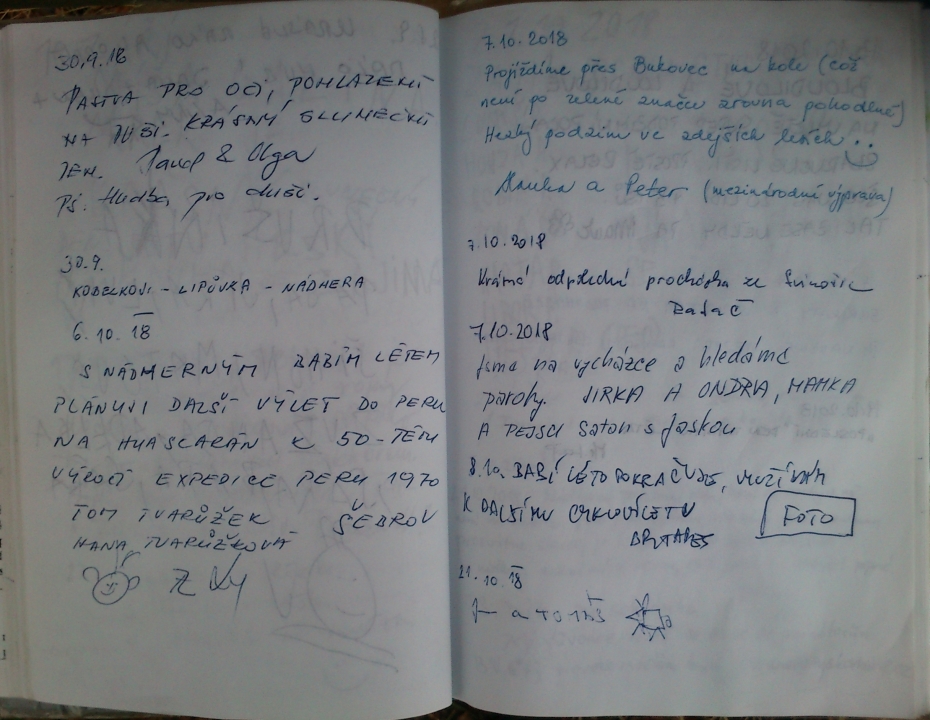 30.9.18
PASTVA PRO OČI, POHLAZENÍ
NA DUŠI. KRÁSNÝ SLUNEČNÍ
DEN. Pavel & Olga
PS. Hudba pro duši.
30.9.
KOBELKOVI - LIPŮVKA - NÁDHERA
6.10.18
S NÁDHERNÝM BABÍM LÉTEM
PLÁNUJI DALŠÍ VÝLET DO PERU
NA HUASCARÁN K 50-TÉMU
VÝROČÍ EXPEDICE PERU 1970
TOM TVARŮŽEK ŠEBROV
HANA TVARŮŽKOVÁ
7.10.2018
Projíždíme přes Bukovec na kole (což
není po zelené značce zrovna pohodlné)
Hezký podzim ve zdejších lesích..
Hanka a Peter (mezinárodní výprava)
7.10.2018
Krásná odpolední procházka ze
7.10.2018
Jsme na vycházce a hledáme
parohy. JIRKA A ONDRA, HANKA
A PEJSCI Saton s Jaskou
8.10. BABÍ LÉTO POKRAČUJE,
K DALŠÍMU
FOTO
21.10.18